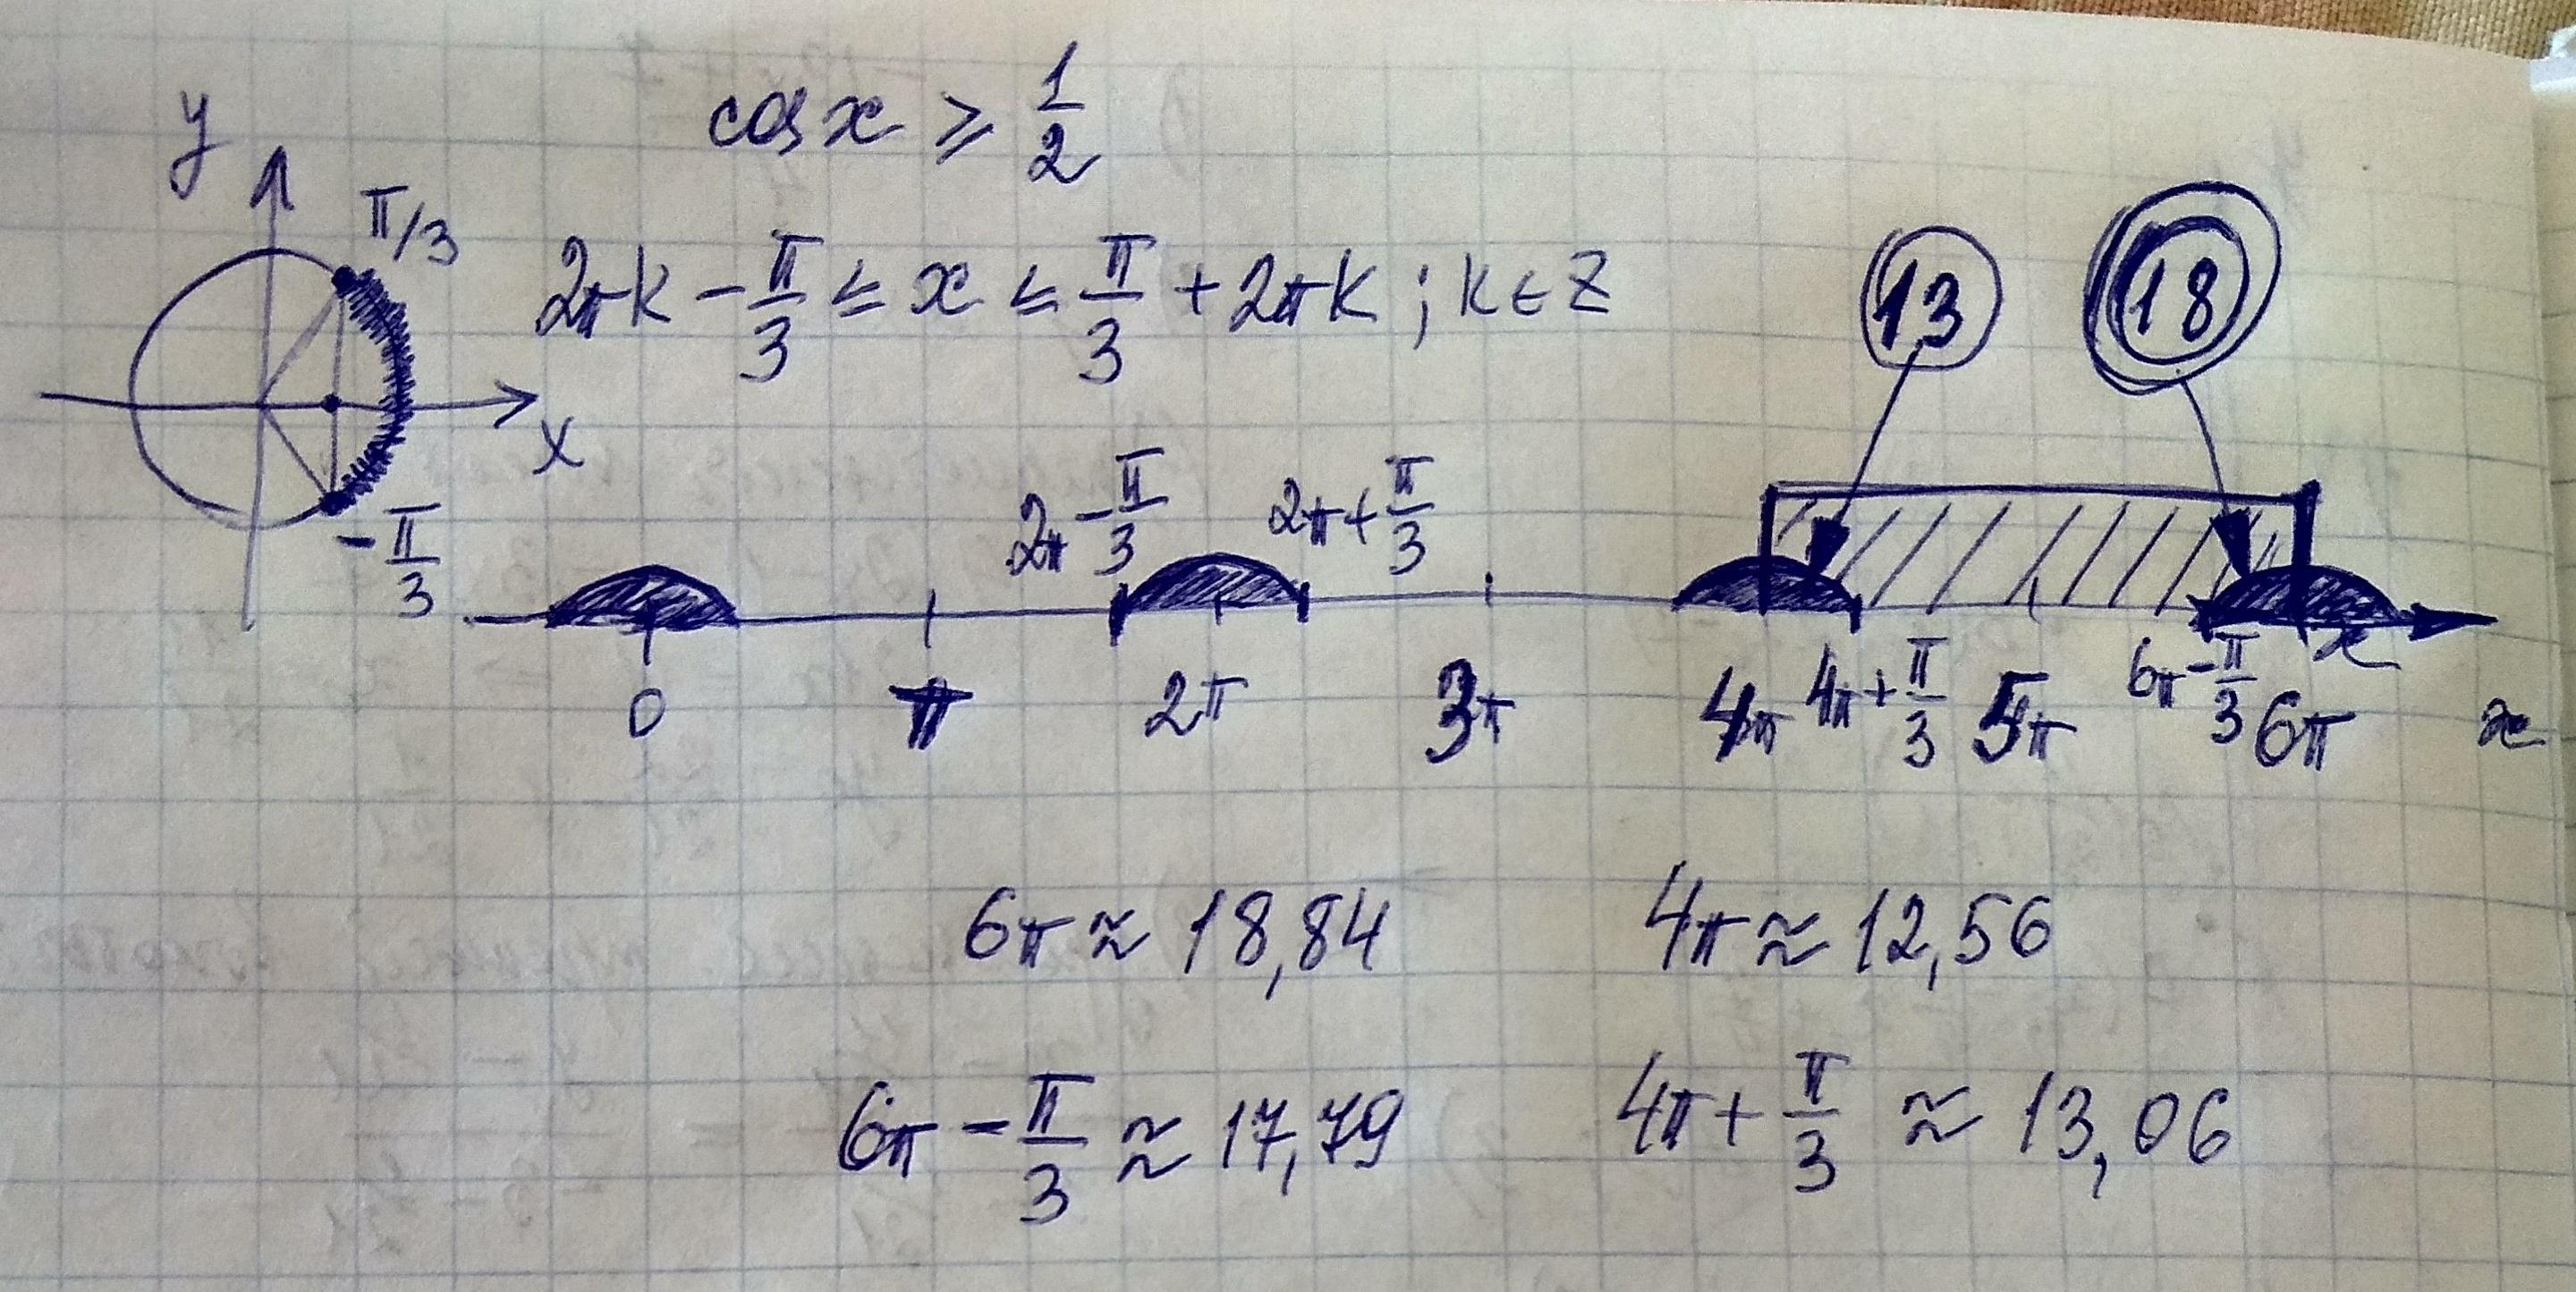 cos x ≥ 1/2
y
π/3
2πk − π/3 ≤ x ≤ π/3 + 2πk ; k ∈ Z
13 18
x
−π/3
2π − π/3 2π + π/3
0 π 2π 3π 4π 4π + π/3 5π 6π − π/3 6π x
x
6π ≈ 18,84 4π ≈ 12,56
6π − π/3 ≈ 17,79 4π + π/3 ≈ 13,06